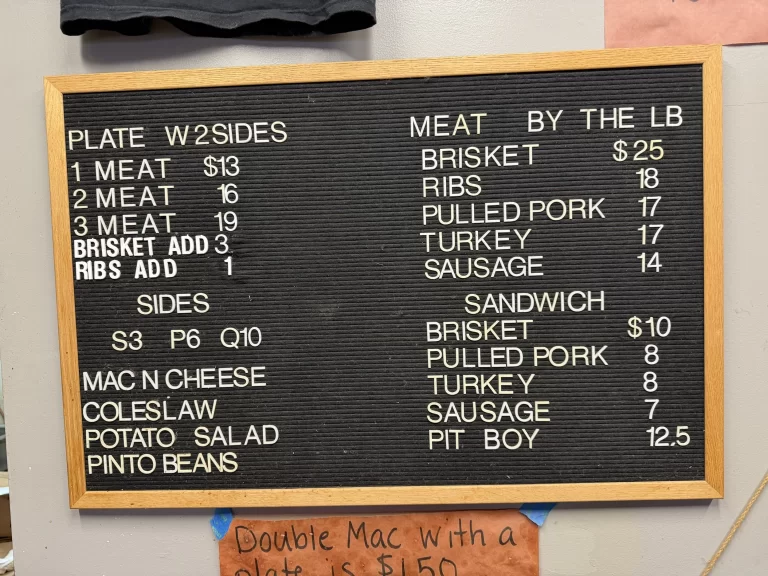 PLATE W 2 SIDES
1 MEAT $13
2 MEAT 16
3 MEAT 19
BRISKET ADD 3
RIBS ADD 1
SIDES
S3 P6 Q10
MAC N CHEESE
COLESLAW
POTATO SALAD
PINTO BEANS
MEAT BY THE LB
BRISKET $25
RIBS 18
PULLED PORK 17
TURKEY 17
SAUSAGE 14
SANDWICH
BRISKET $10
PULLED PORK 8
TURKEY 8
SAUSAGE 7
PIT BOY 12.5
Double Mac with a
plate is $1.50